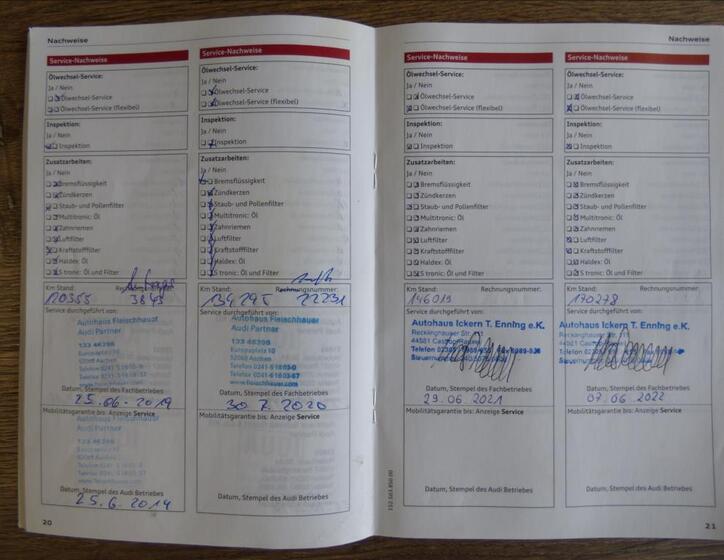 Nachweise
Service-Nachweise
Ölwechsel-Service:
Ja / Nein
Ölwechsel-Service
Ölwechsel-Service (flexibel)
Inspektion:
Ja / Nein
Inspektion
Zusatzarbeiten:
Ja / Nein
Bremsflüssigkeit
Zündkerzen
Staub- und Pollenfilter
Multitronic: Öl
Zahnriemen
Luftfilter
Kraftstofffilter
Haldex: Öl
S tronic: Öl und Filter
Km Stand:
120355
3843
Service durchgeführt von:
Autohaus Fleischhauer
Audi Partner
133 46396
Europaplatz 10
52068 Aachen
Datum, Stempel des Fachbetriebes
25.06.2019
Mobilitätsgarantie bis: Anzeige Service
Audi Partner
Datum, Stempel des Audi Betriebes
25.6.2019
20
Service-Nachweise
Ölwechsel-Service:
Ja / Nein
Ölwechsel-Service
Ölwechsel-Service (flexibel)
Inspektion:
Ja / Nein
Inspektion
Zusatzarbeiten:
Ja / Nein
Bremsflüssigkeit
Zündkerzen
Staub- und Pollenfilter
Multitronic: Öl
Zahnriemen
Luftfilter
Kraftstofffilter
Haldex: Öl
S tronic: Öl und Filter
Km Stand: Rechnungsnummer:
134295 22231
Service durchgeführt von:
Autohaus Fleischhauer
Audi Partner
133 46396
Europaplatz 10
52068 Aachen
www.fleischhauer.com
Datum, Stempel des Fachbetriebes
30.7.2020
Mobilitätsgarantie bis: Anzeige Service
Datum, Stempel des Audi Betriebes
Nachweise
Service-Nachweise
Ölwechsel-Service:
Ja / Nein
Ölwechsel-Service
Ölwechsel-Service (flexibel)
Inspektion:
Ja / Nein
Inspektion
Zusatzarbeiten:
Ja / Nein
Bremsflüssigkeit
Zündkerzen
Staub- und Pollenfilter
Multitronic: Öl
Zahnriemen
Luftfilter
Kraftstofffilter
Haldex: Öl
S tronic: Öl und Filter
Km Stand: Rechnungsnummer:
146019
Service durchgeführt von:
Autohaus Ickern T. Enning e.K.
Recklinghauser Str.
44581
Telefon
Datum, Stempel des Fachbetriebes
29.06.2021
Mobilitätsgarantie bis: Anzeige Service
Datum, Stempel des Audi Betriebes
Service-Nachweise
Ölwechsel-Service:
Ja / Nein
Ölwechsel-Service
Ölwechsel-Service (flexibel)
Inspektion:
Ja / Nein
Inspektion
Zusatzarbeiten:
Ja / Nein
Bremsflüssigkeit
Zündkerzen
Staub- und Pollenfilter
Multitronic: Öl
Zahnriemen
Luftfilter
Kraftstofffilter
Haldex: Öl
S tronic: Öl und Filter
Km Stand: Rechnungsnummer:
170278
Service durchgeführt von:
Autohaus Ickern T. Enning e.K.
44581
Telefon
Datum, Stempel des Fachbetriebes
07.06.2022
Mobilitätsgarantie bis: Anzeige Service
Datum, Stempel des Audi Betriebes
21